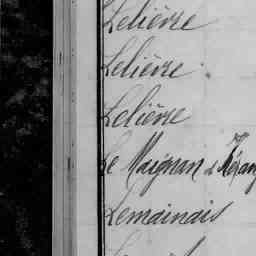 Lelièvre
Lelièvre
Lelièvre
Le Maignan de
Lemainais